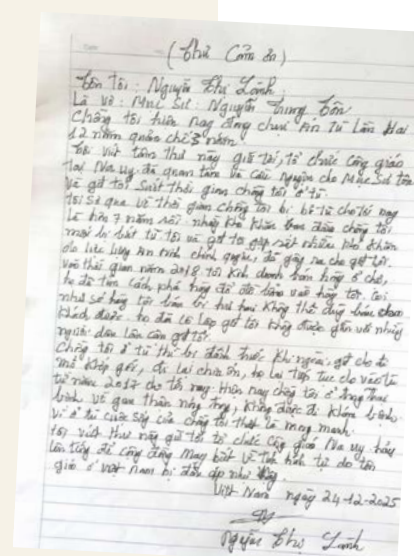 (Thư Cảm ơn)
Tên tôi: Nguyễn Thị Lành
Là vợ: Mục sư: Nguyễn Trung Tôn
Chồng tôi hiện nay đang chịu Án Tù Lần Hai
12 năm quản chế 3 năm
Tôi viết tâm thư này gửi tới, tổ chức Công giáo
tại Na uy đã quan tâm và cầu nguyện cho Mục sư tôn
và gđ tôi suốt thời gian chồng tôi ở tù.
tôi sơ qua về thời gian chồng tôi bị bỏ tù cho tới nay
là hơn 7 năm rồi những khó khăn ban đầu chồng tôi
mới bị bắt tù tôi và gđ tôi gặp rất nhiều khó khăn
do lực lượng An ninh chính quyền, đã gây ra cho gđ tôi.
vào thời gian năm 2018 tôi kinh doanh bán hàng ở chợ,
họ đã tìm cách phá hàng đổ dầu vào hàng tôi. coi
như số hàng tôi bán bị hư hại không thể dùng bán cho
khách được. họ đã cô lập gđ tôi không được gần với những
người dân lân cận gđ tôi.
Chồng tôi ở tù thì bị đánh trước khi ngồi, gđ cho đi
mổ khớp gối, đi lại chưa ổn, họ lại tiếp tục cho vào tù
từ năm 2017 cho tới nay. Hiện nay chồng tôi ở trong trại
bệnh về gan thận nặng, không được đi khám bệnh.
vì ở tù cuộc sống của chồng tôi thật là mong manh.
tôi viết thư này gửi tới tổ chức Công giáo Na uy hãy
lên tiếng để cộng đồng biết về tình hình tự do tôn
giáo ở việt nam bị đàn áp như vậy.
Việt Nam ngày 24-12-2025
Nguyễn Thị Lành